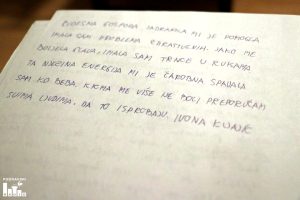 GOSPOĐA JADRANKA MI JE POMOGLA
IMALA SAM PROBLEMA JAKO ME
BOLJELA GLAVA, IMALA SAM TRNCE U RUKAMA
TA NJEZINA ENERGIJA MI JE ČAROBNA SPAVALA
SAM KO BEBA, KIČMA ME VIŠE NE BOLI PREPORUČAM
SVIMA LJUDIMA, DA TO ISPROBAJU. IVONA